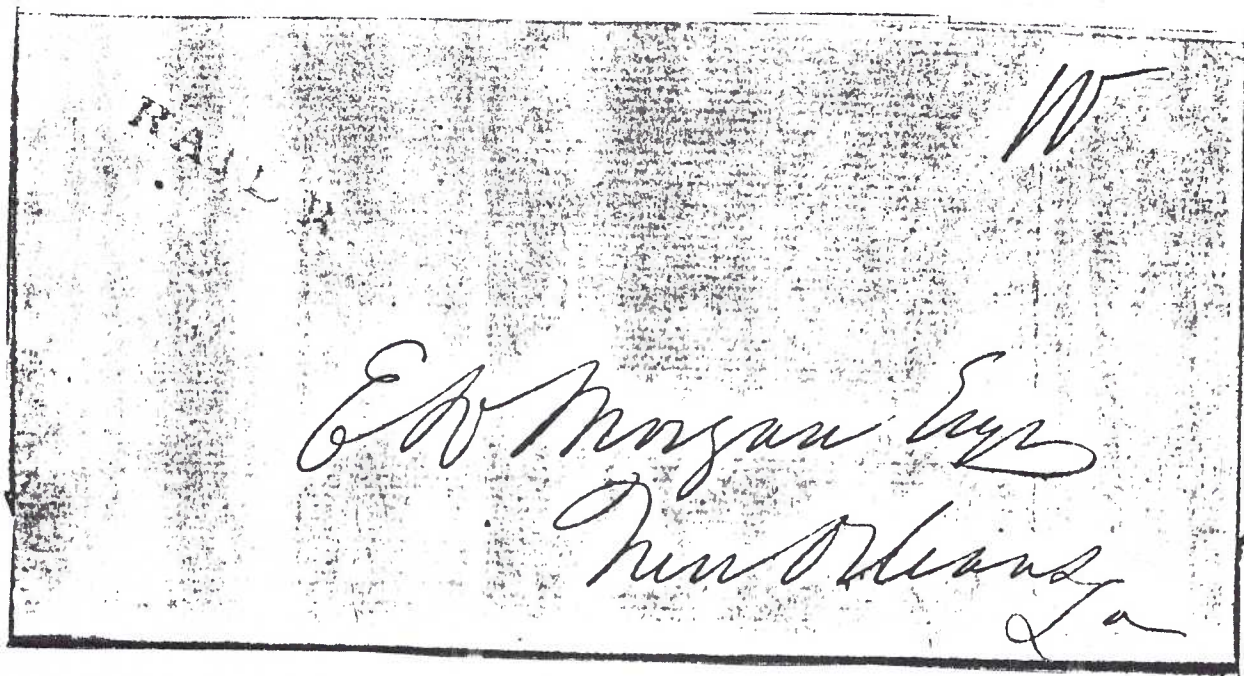 RAIL R
W
E W Morgan Esqr
New Orleans
La